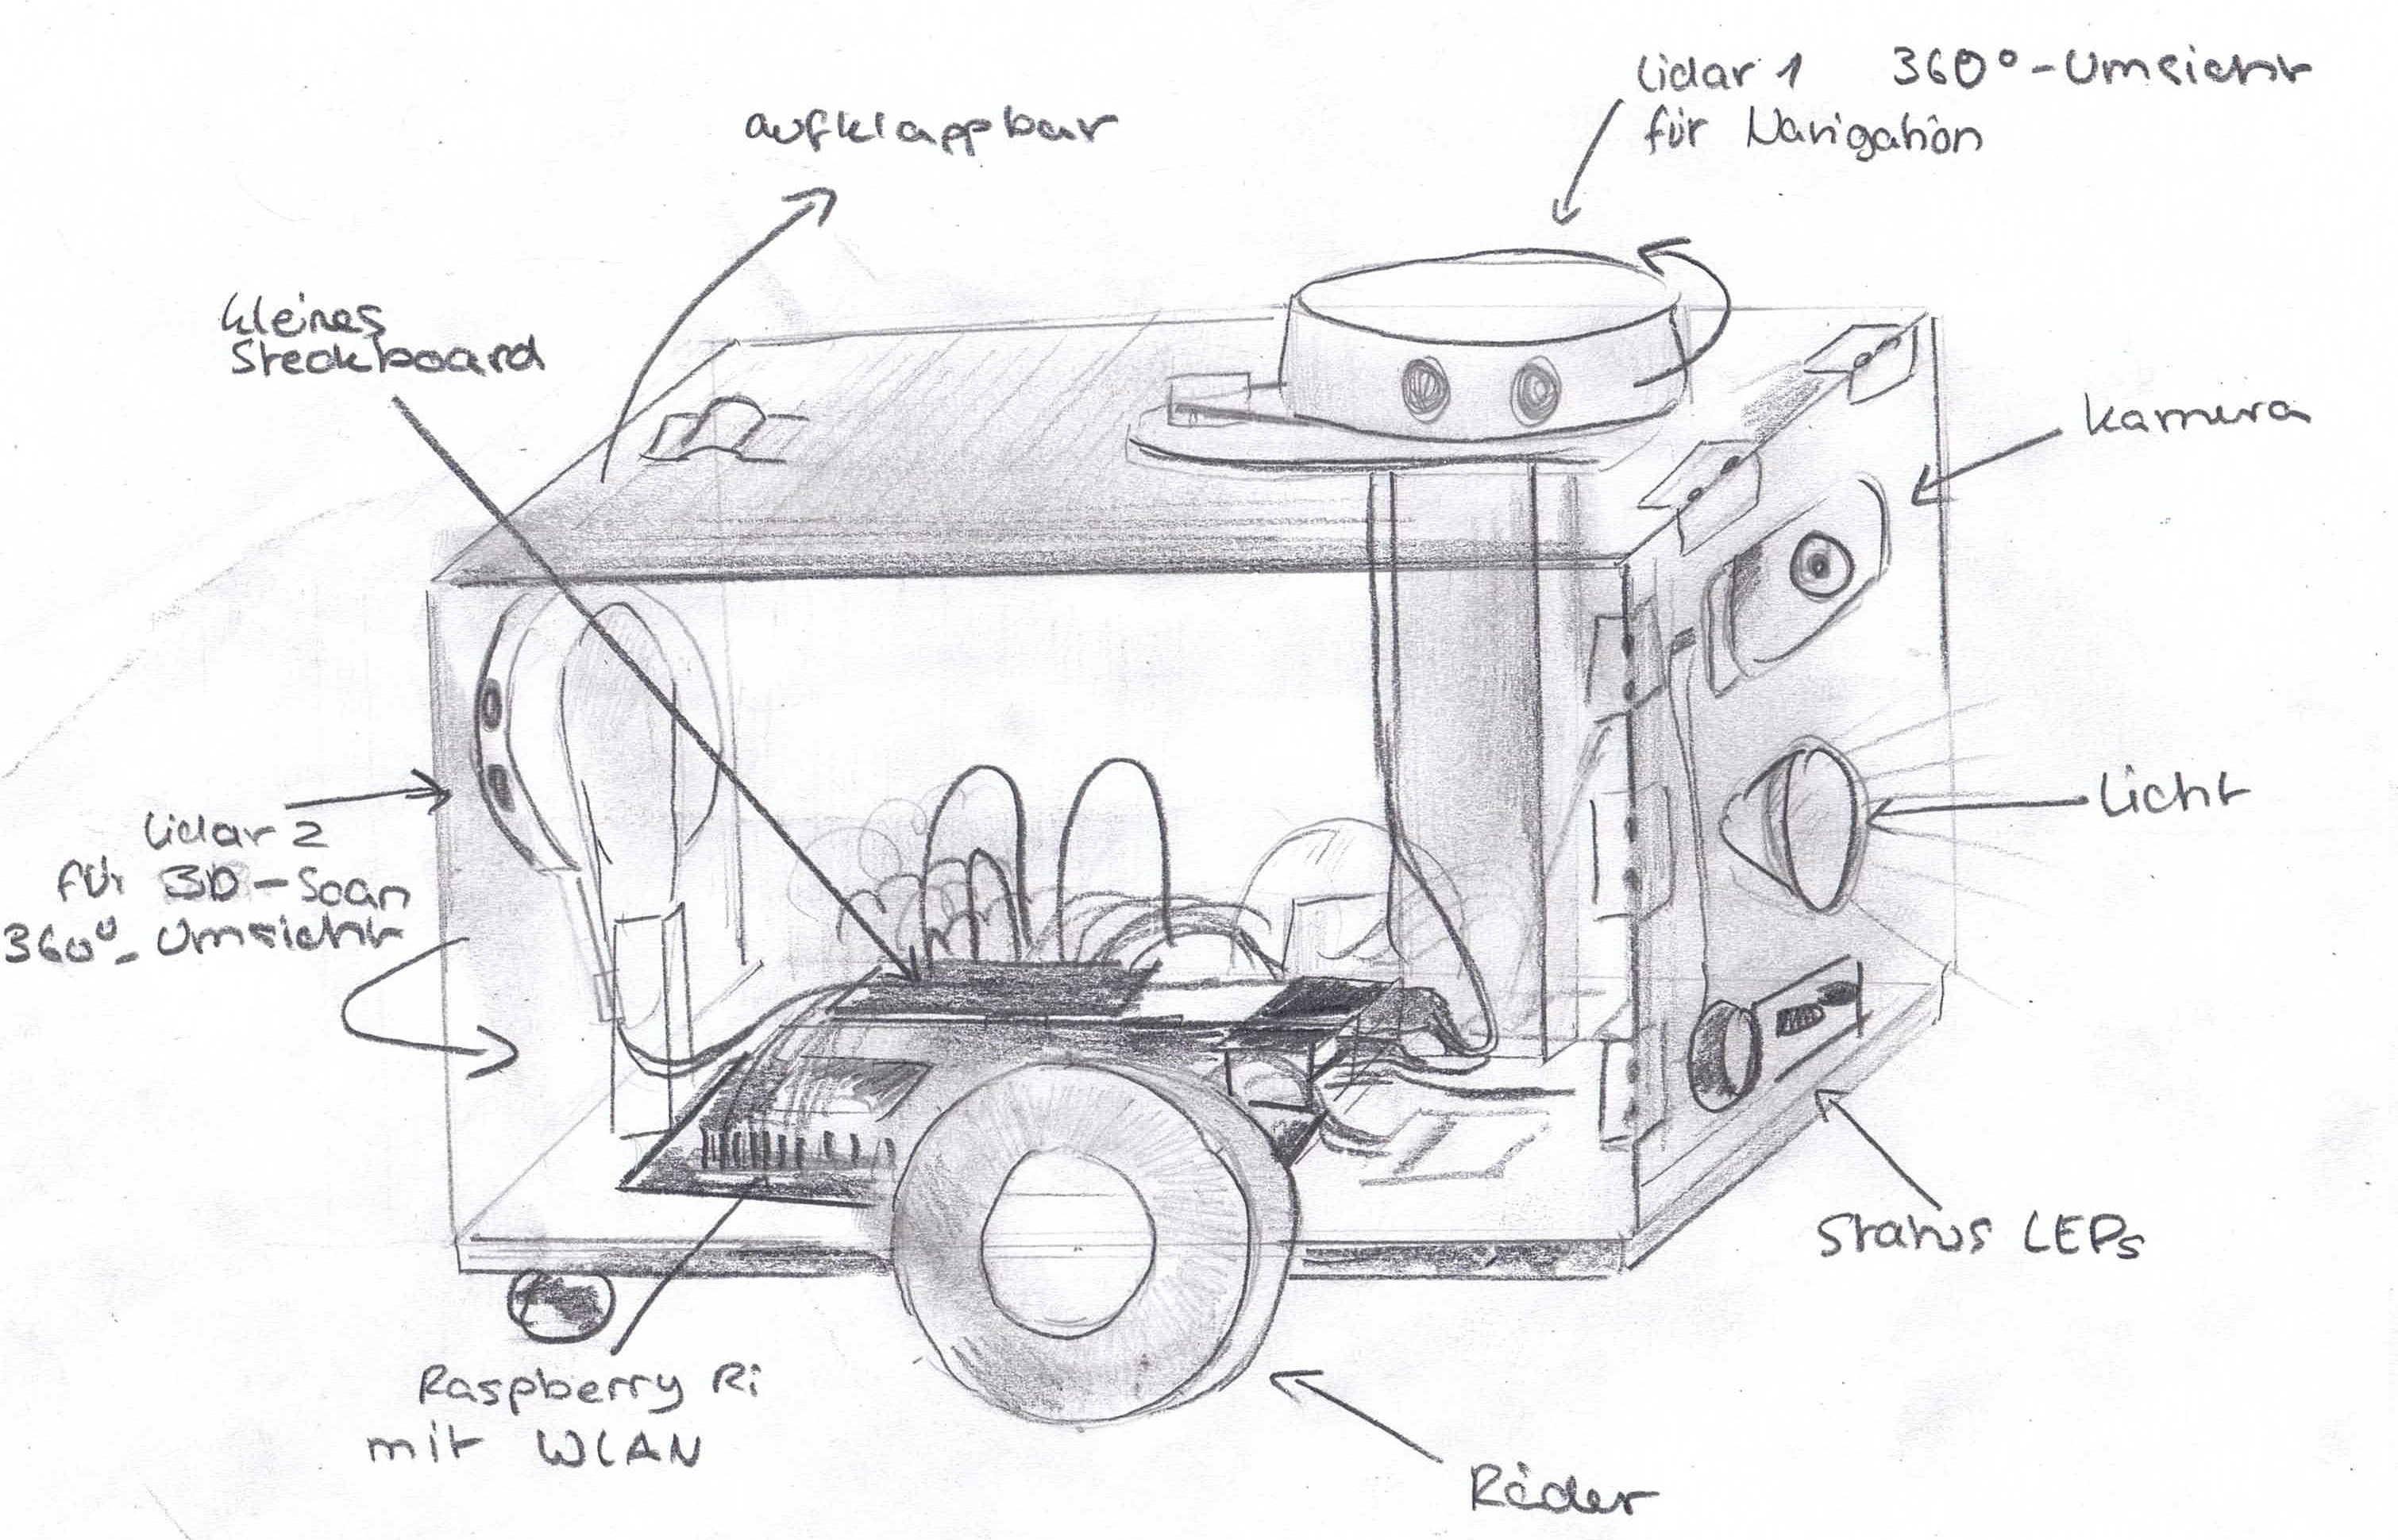 aufklappbar
Lidar 1 360°-Umsicht
für Navigation
kleines
Steckboard
Kamera
Licht
Lidar 2
für 3D-Scan
360°-Umsicht
Status LEDs
Raspberry Pi
mit WLAN
Räder